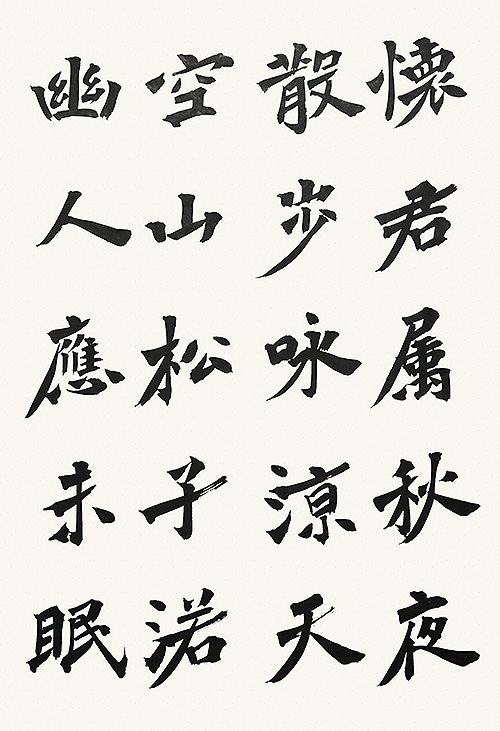 懐君属秋夜
散步咏涼天
空山松子落
幽人應未眠